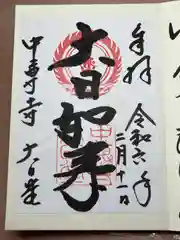 奉拝
令和六年
二月十一日
大日如来
中尊寺 大日堂